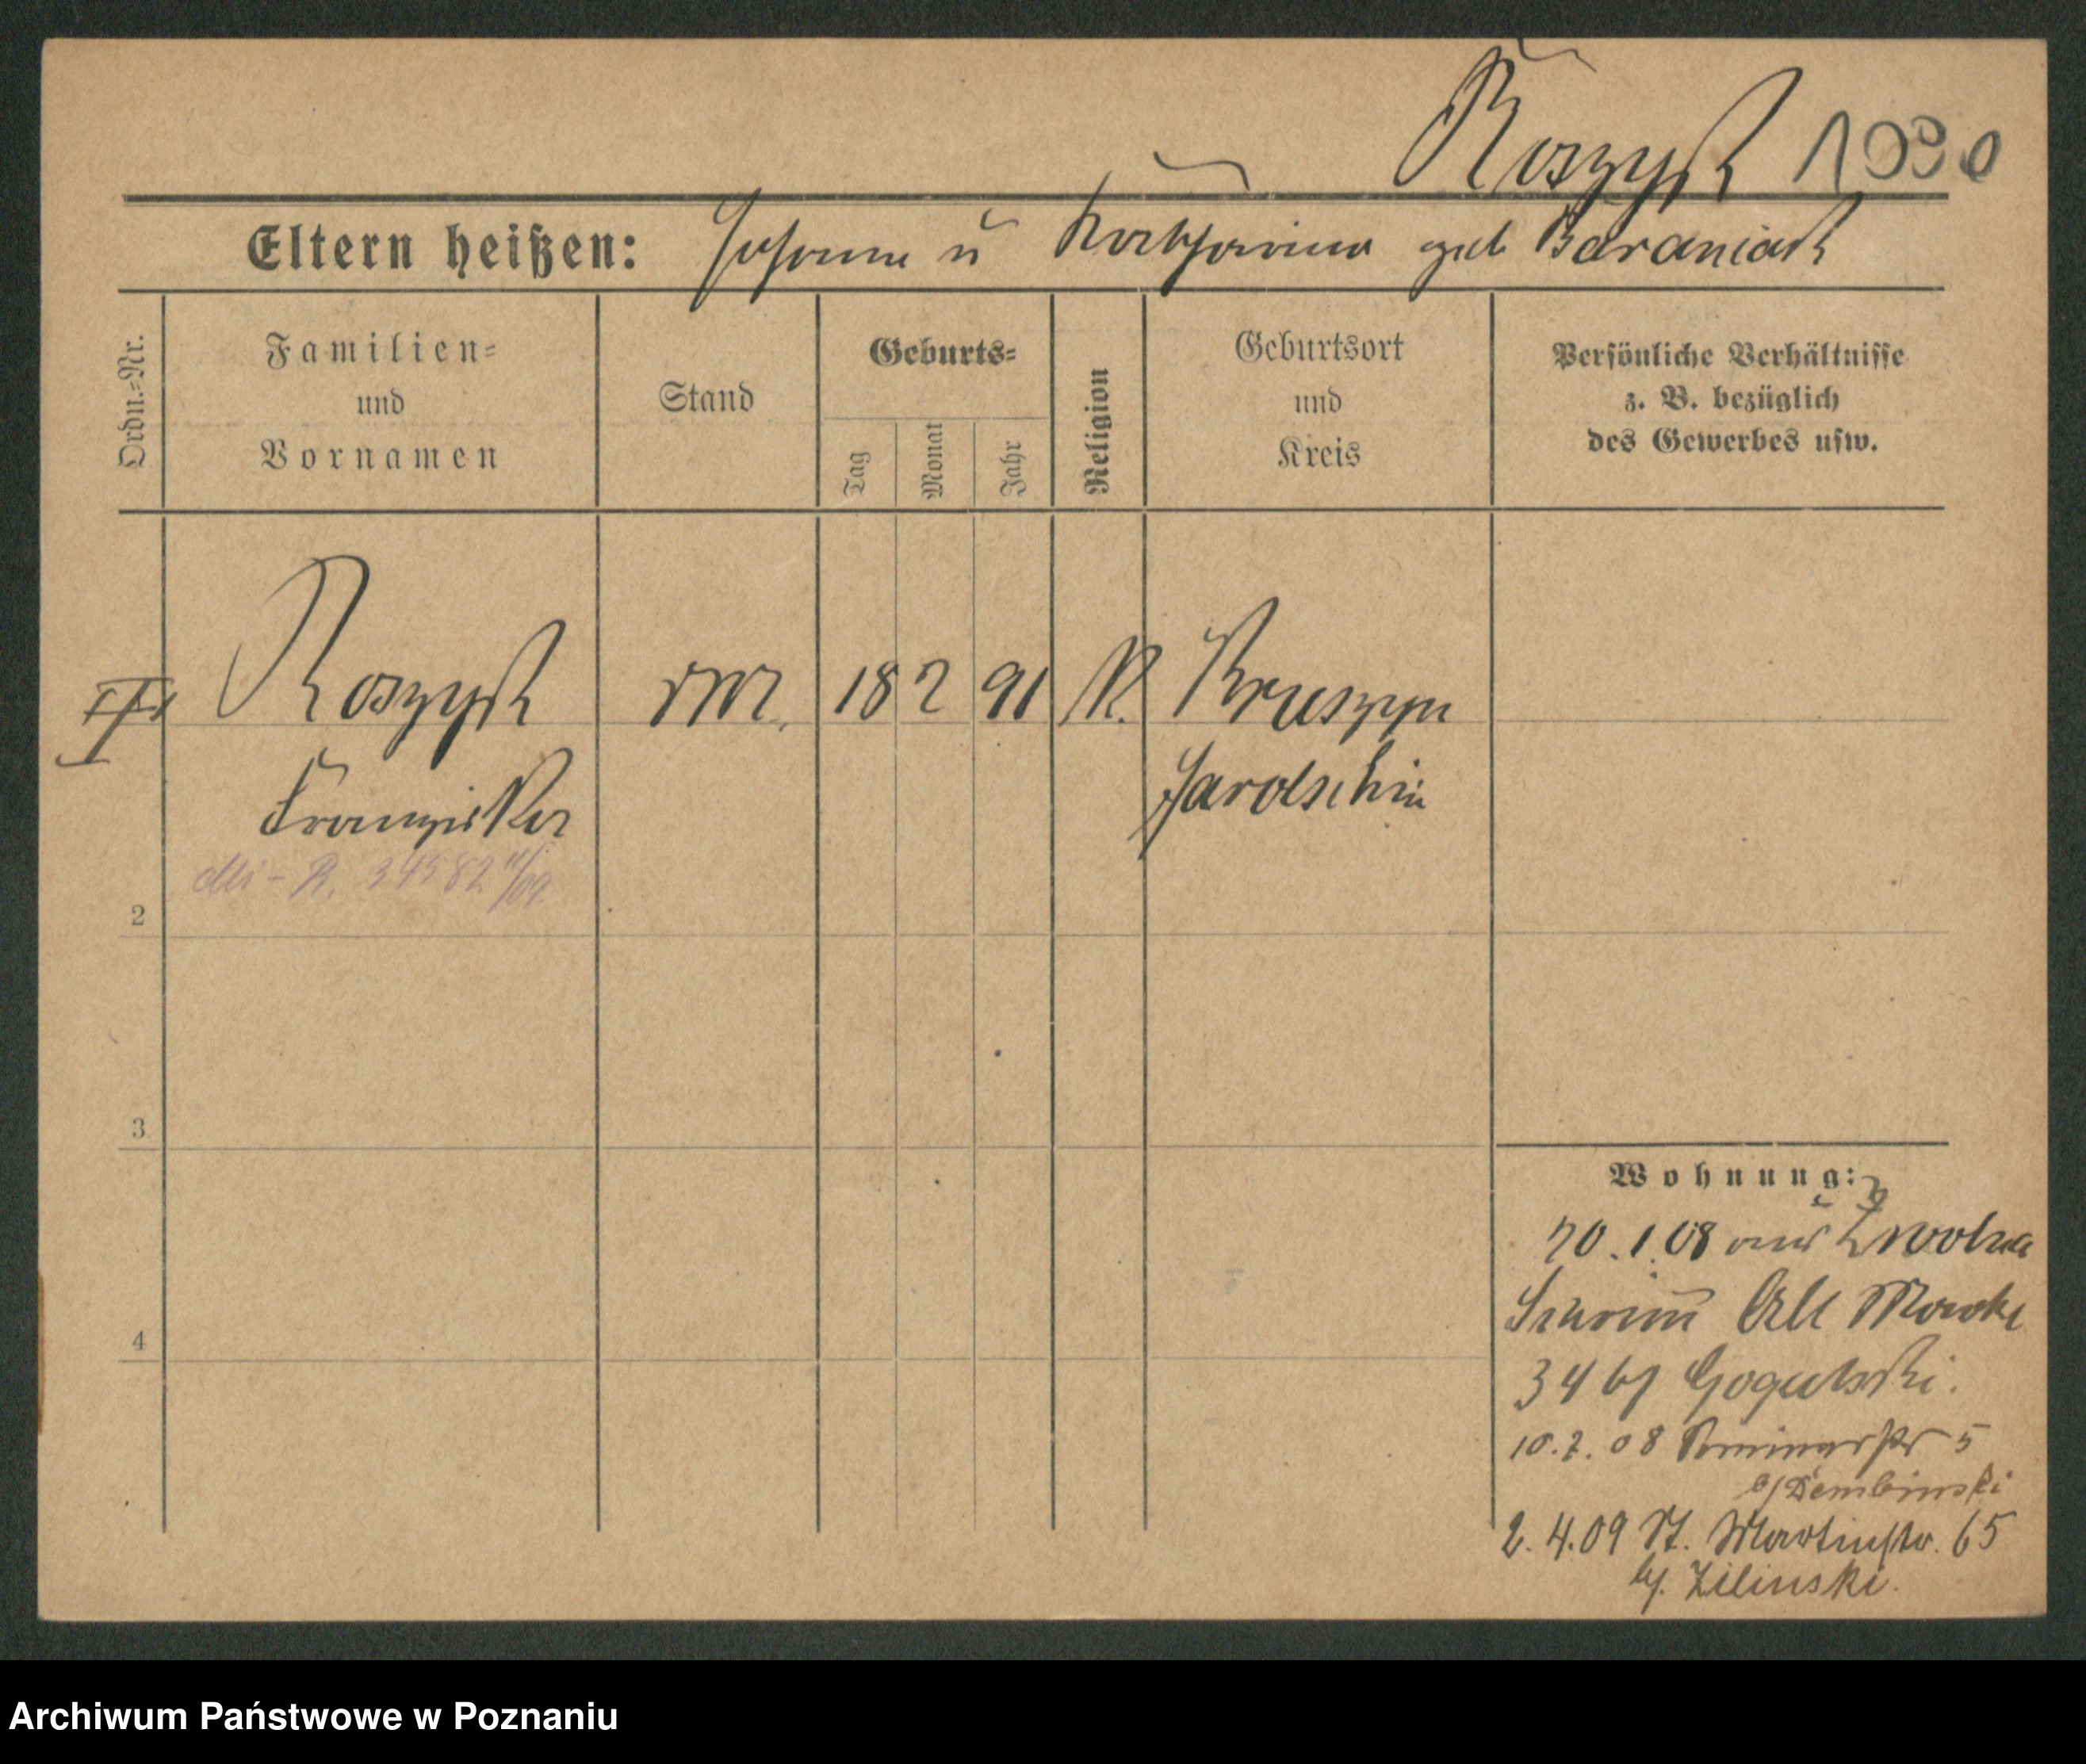 Roszyk 1090
Eltern heißen: Johann u Katharina geb Baraniak
Ordn.=Nr.
Familien=
und
Vornamen
Stand
Geburts=
Tag
Monat
Jahr
Religion
Geburtsort
und
Kreis
Persönliche Verhältnisse
z. B. bezüglich
des Gewerbes usw.
Roszyk 18 2 91 K.
Franziska Jarotschin
R. 34582
2
3
4
Wohnung:
20.1.08 aus Zwolna
Schrimm Alt Markt
34 bj Gogulski.
10.2.08 5
bj Dembinski
2.4.09 St. Martinstr. 65
bj. Zilinski.
Archiwum Państwowe w Poznaniu